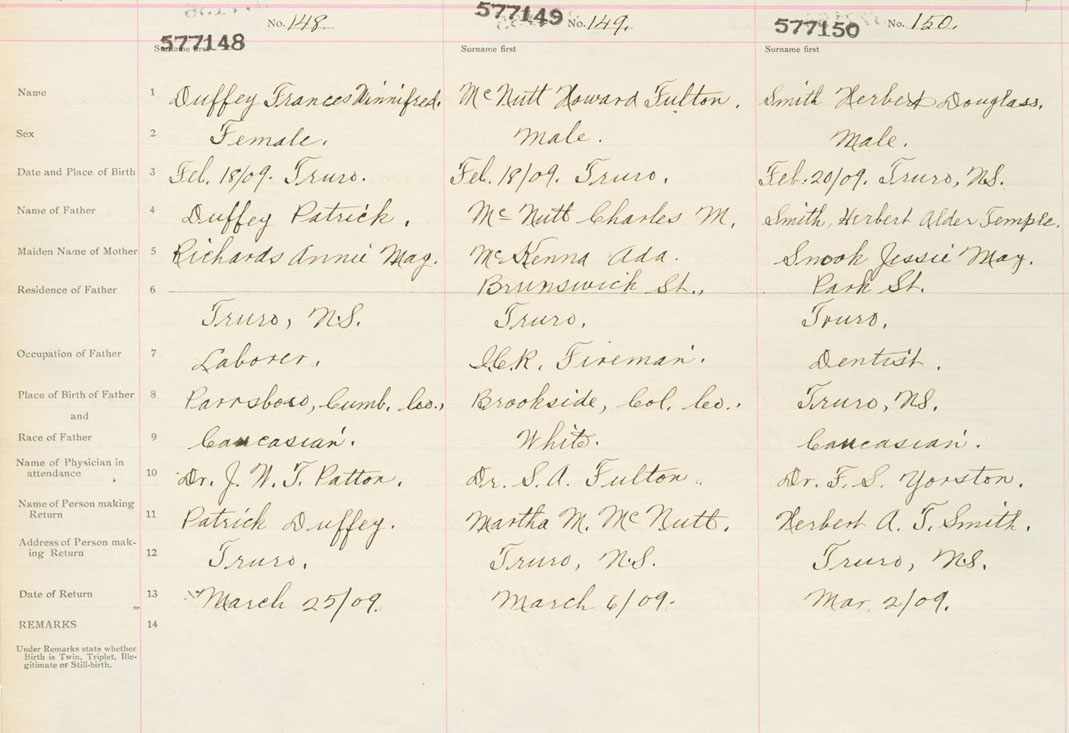 No. 148. No. 149. No. 150.
577148 577149 577150
Surname first Surname first Surname first
Name 1 Duffey Frances Winnifred. McNutt Howard Fulton. Smith Herbert Douglass.
Sex 2 Female. Male. Male.
Date and Place of Birth 3 Feb. 18/09. Truro. Feb. 18/09. Truro. Feb. 20/09. Truro, N.S.
Name of Father 4 Duffey Patrick. McNutt Charles M. Smith, Herbert Alder Temple.
Maiden Name of Mother 5 Richards Annie May. McKenna Ada. Snook Jessie May.
Residence of Father 6 Brunswick St., Park St.
Truro, N.S. Truro. Truro.
Occupation of Father 7 Laborer. I.C.R. Fireman. Dentist.
Place of Birth of Father 8 Parrsboro, Cumb. Co., Brookside, Col. Co.. Truro, N.S.
and
Race of Father 9 Caucasian. White. Caucasian.
Name of Physician in
attendance 10 Dr. J. W. T. Patton. Dr. S. A. Fulton. Dr. F. S. Yorston.
Name of Person making
Return 11 Patrick Duffey. Martha M. McNutt. Herbert A. T. Smith.
Address of Person mak-
ing Return 12 Truro. Truro, N.S. Truro, N.S.
Date of Return 13 March 25/09. March 6/09. Mar. 2/09.
REMARKS 14
Under Remarks state whether
Birth is Twin, Triplet, Ille-
gitimate or Still-birth.